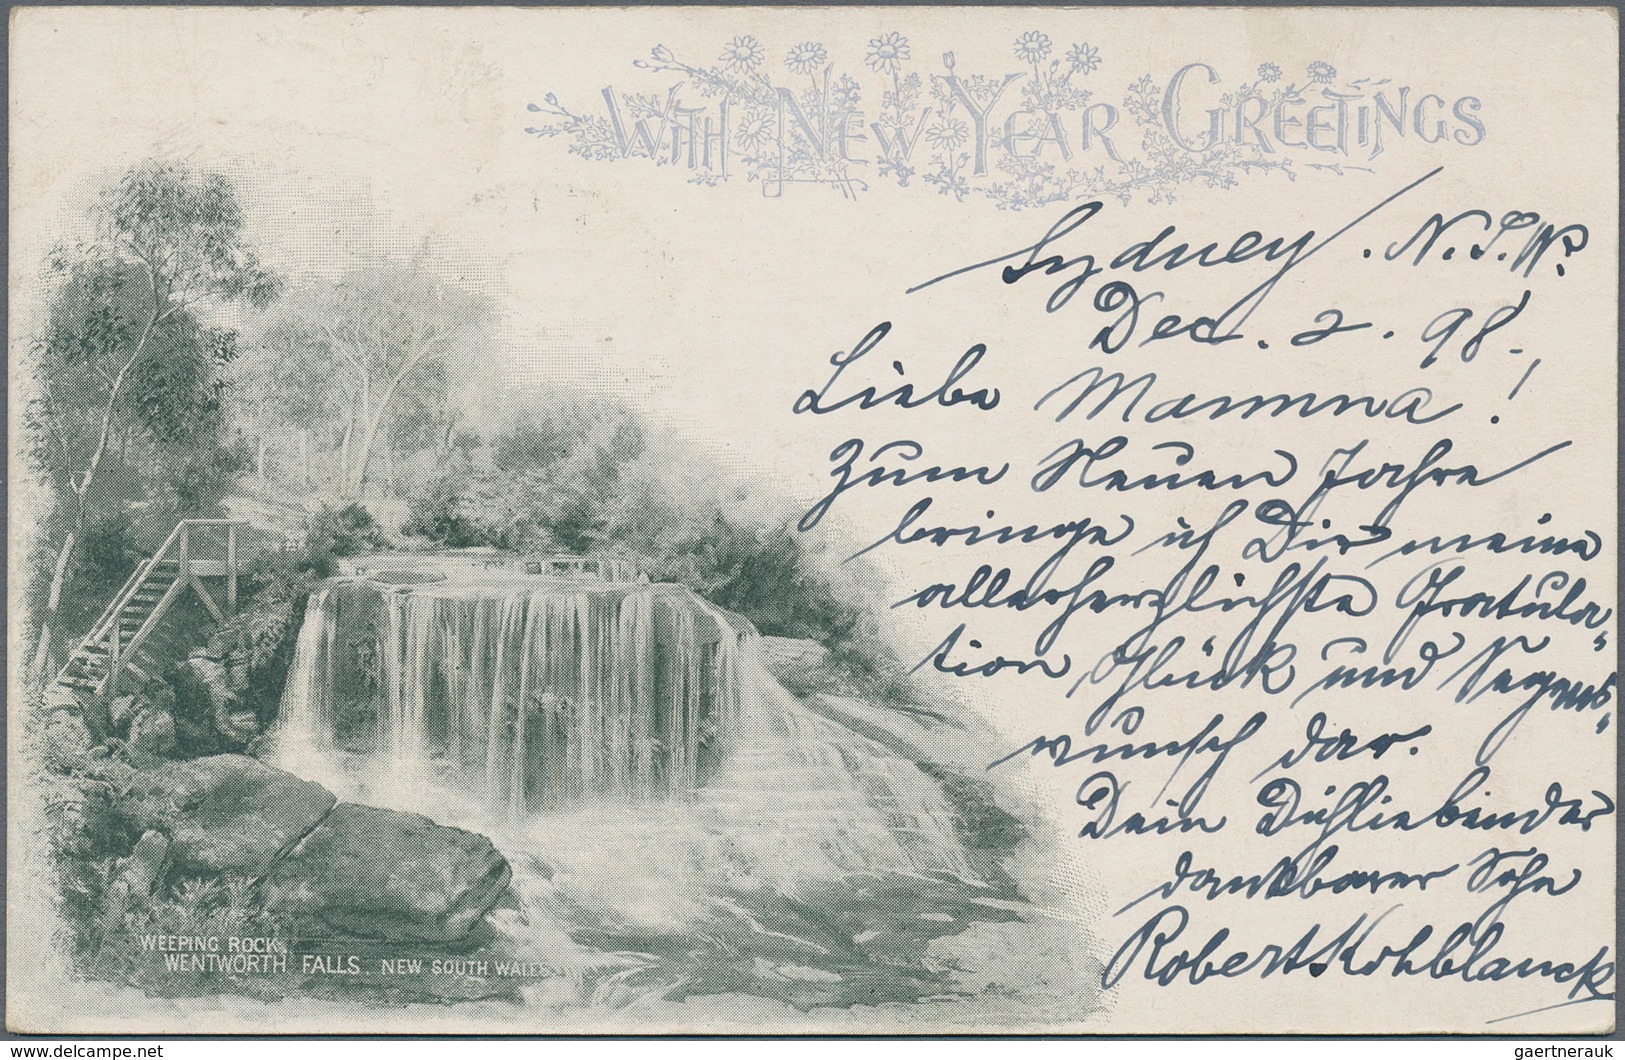 WITH NEW YEAR GREETINGS
Sydney. N.S.W.
Dec. 2. 98.
Liebe Mamma!
Zum Neuen Jahre
bringe ich Dir meine
allerherzlichste Gratula-
tion, Glück und Segens-
wunsch dar.
Dein Dichliebender
dankbarer Sohn
Robert Kohblanck
WEEPING ROCK,
WENTWORTH FALLS. NEW SOUTH WALES
© www.delcampe.net
gaertnerauk